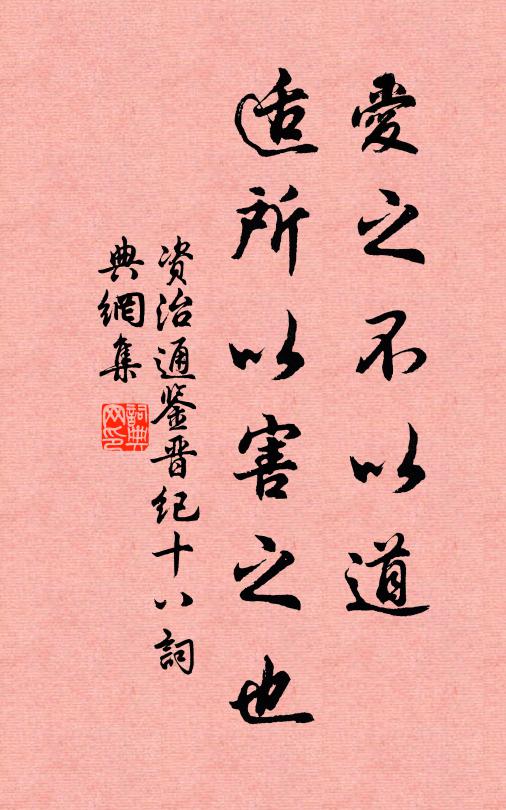 愛之不以道
适所以害之也
资治通鉴晋纪十八詞
典網集
詞典
网印